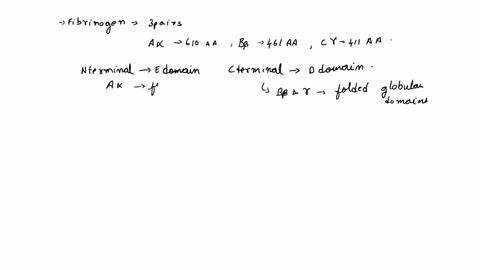 → Fibrinogen → 3pairs
Aα → 610 AA , Bβ → 461 AA , CΥ → 411 AA .
Nterminal → E domain Cterminal → D domain .
Aα → f ↳ Bβ & Υ → folded globular
domains